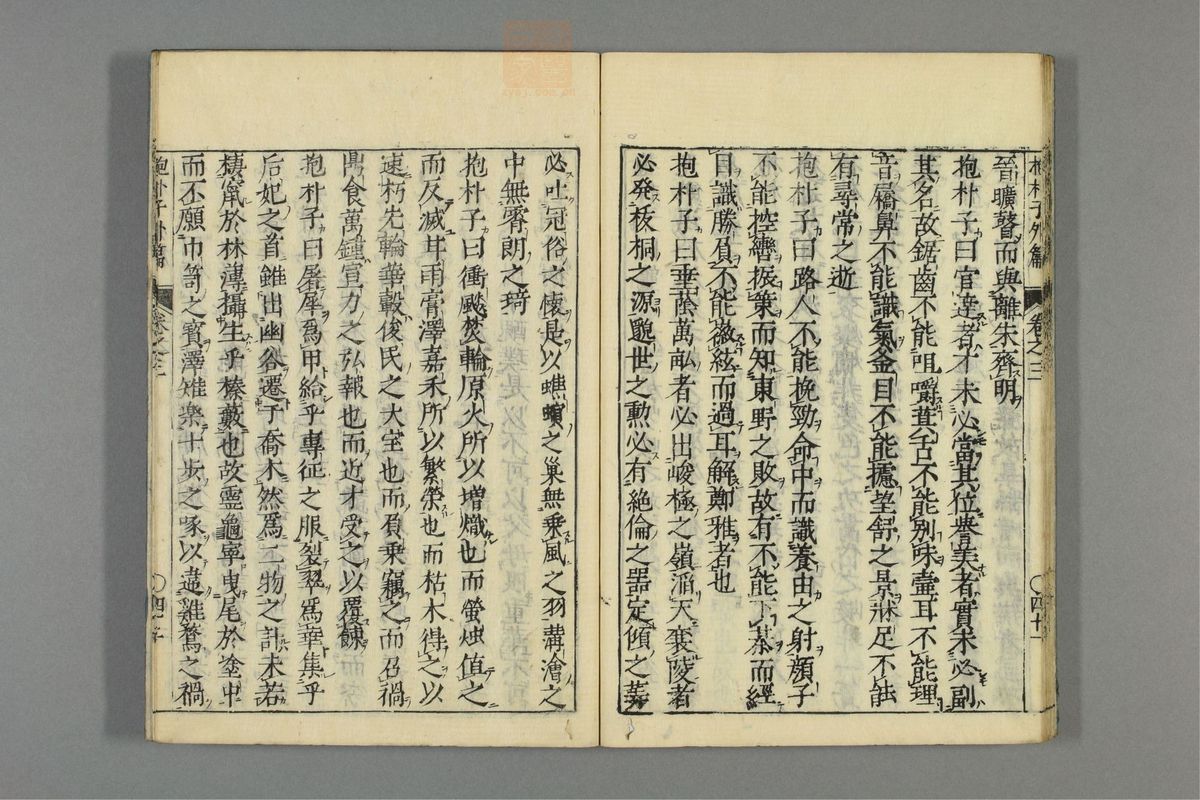 抱朴子外篇 卷之三 〇四十一
晉曠瞽而與離朱齊明
抱朴子曰官達者才未必當其位譽美者實未必副
其名故鋸齒不能咀嚼箕舌不能別味壷耳不能理
音屩鼻不能識氣釜目不能攄望舒之景牀足不能
有尋常之逝
抱朴子曰路人不能挽勁命中而識養由之射顔子
不能控轡振策而知東野之敗故有不能下棊而經
目識勝負不能徽絃而過耳解鄭雅者也
抱朴子曰垂蔭萬畝者必出峻極之嶺滔天襄陵者
必発板桐之源邈世之勲必有絶倫之器定傾之筭
必吐冠俗之懐是以蟭螟之巢無乗風之羽溝澮之
中無宵朗之琦
抱朴子曰衝飈焚輪原火所以増熾也而螢燭値之
而反滅甘雨膏澤嘉禾所以繁榮也而枯木得之以
速朽朱輪華轂俊民之大宝也而負乗竊之而召禍
鼎食萬鍾宣力之弘報也而近才受之以覆餗
抱朴子曰屠犀爲甲給乎專征之服裂翠爲華集乎
后妃之首雖出幽谷遷于喬木然爲二物之計未若
棲竄於林薄攝生乎榛藪也故霊龜寧曳尾於塗中
而不願巾笥之寳澤雉樂十歩之啄以違雞鶩之禍
抱朴子外篇 卷之三
zysj.com.cn